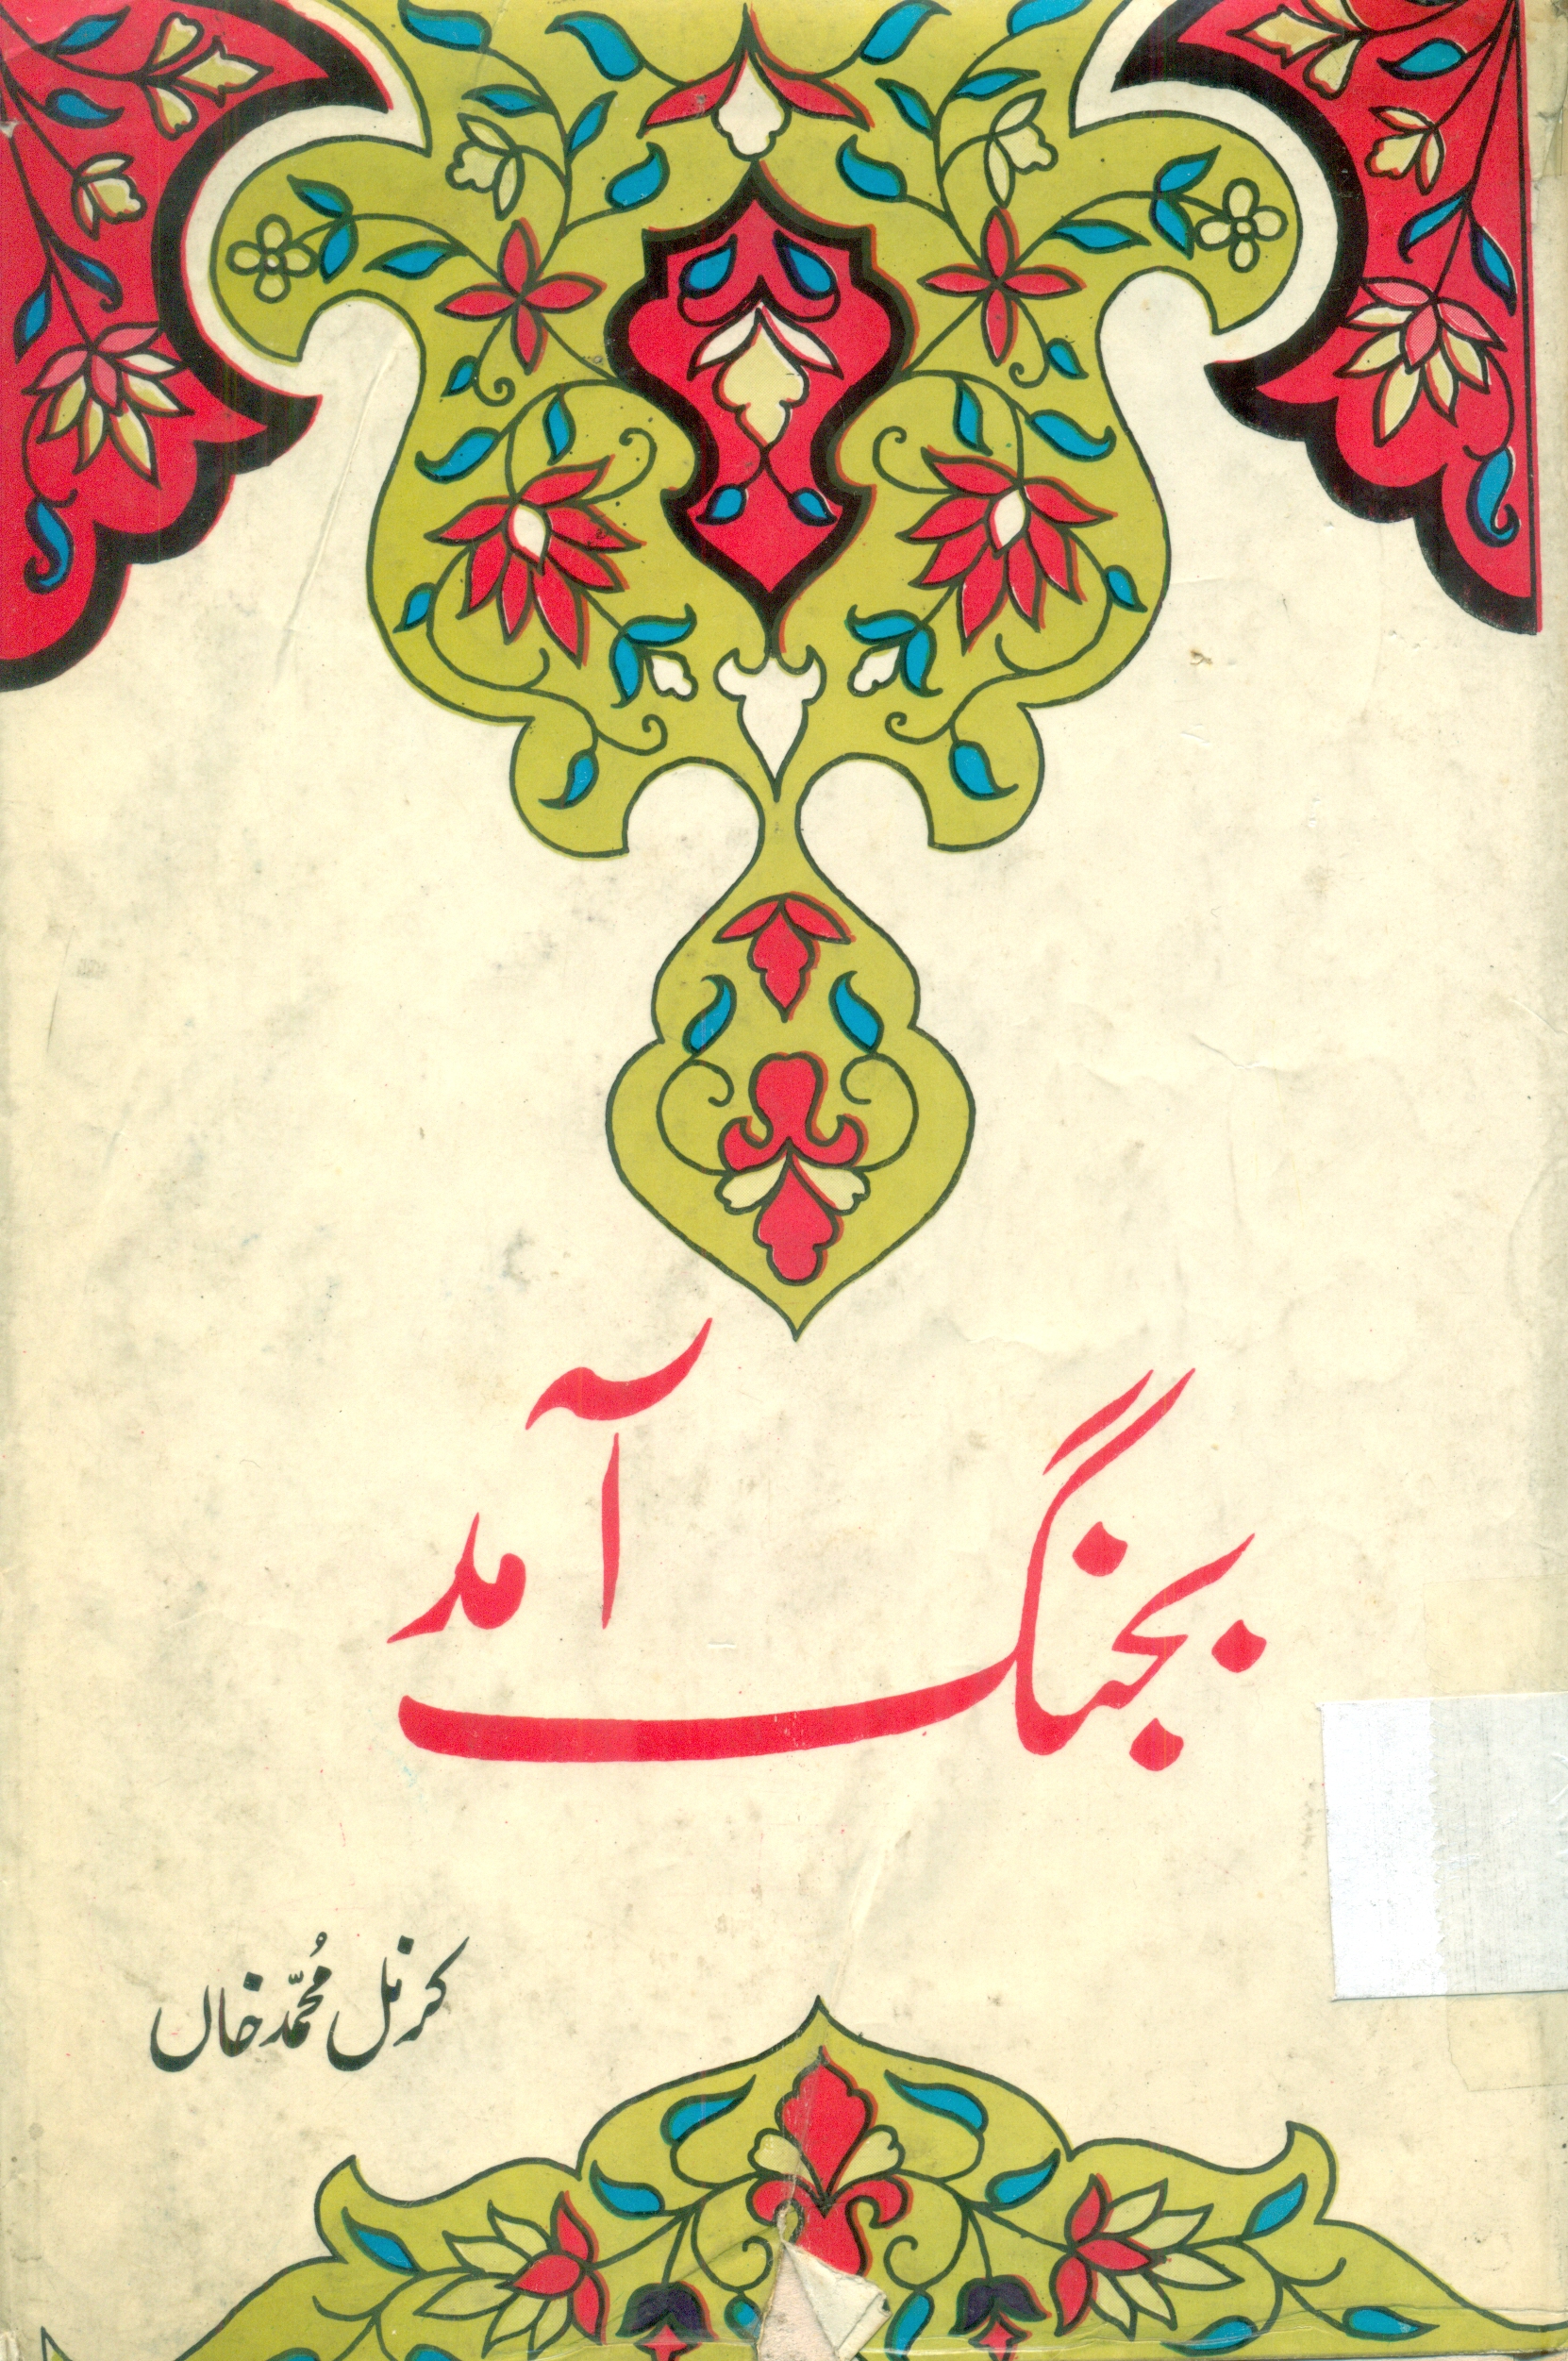 بجنگ آمد
کرنل محمّد خاں